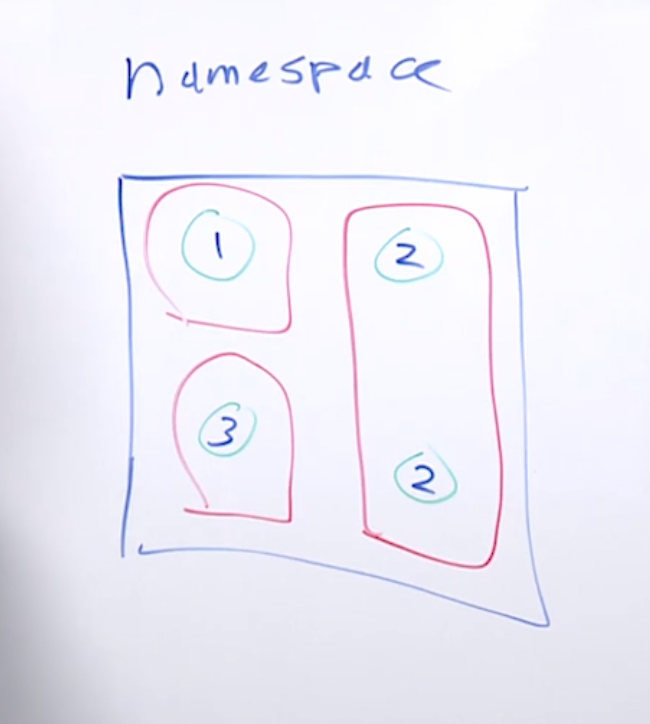 namespace
1 2
3
2